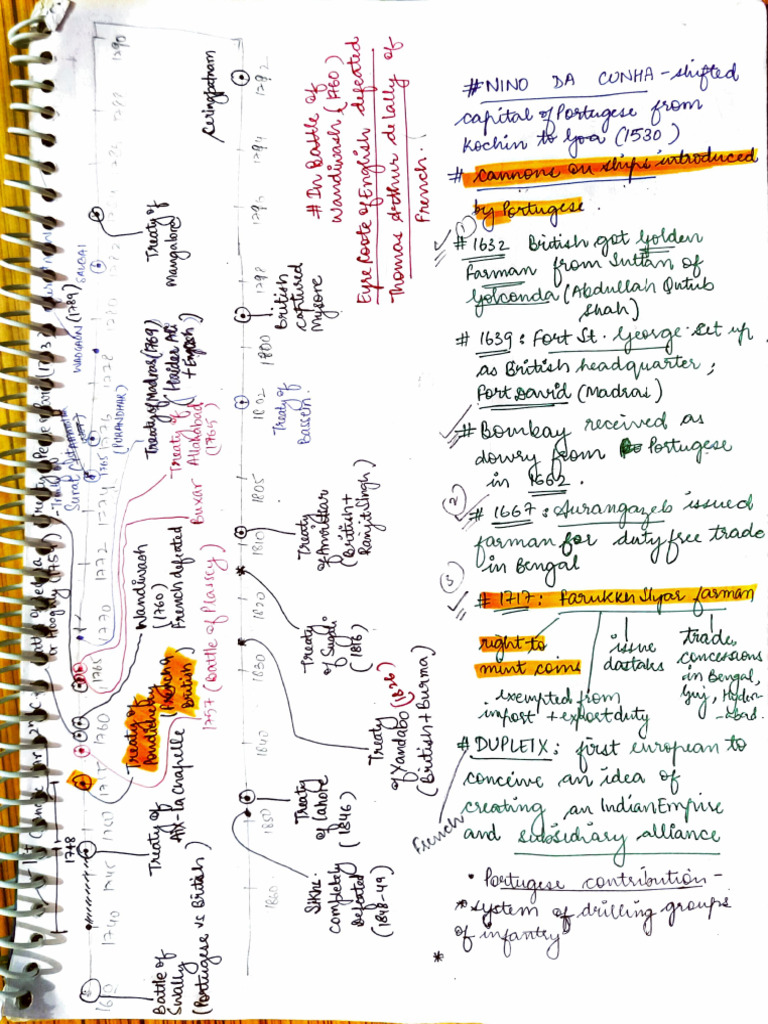 # NINO DA CUNHA - shifted
capital of Portugese from
Kochin to Goa (1530)
# cannons on ships introduced
by Portugese.
1
# 1632 British got Golden
Farman from Sultan of
Golconda (Abdullah Qutub
Shah)
# 1639: Fort St. George set up
as British headquarter,
Fort David (Madras)
# Bombay received as
dowry from Portugese
in 1662.
2
# 1667: Aurangazeb issued
farman for duty free trade
in Bengal
3
# 1717: Farukh Siyar farman
right to
mint coins
exempted from
import + export duty
issue
dastaks
trade
concessions
in Bengal,
Guj, Hyder-
abad.
# DUPLEIX: first european to
conceive an idea of
creating an Indian Empire
and subsidiary alliance
French
• Portugese contribution -
* system of drilling groups
of infantry
*
# In Battle of
Wandiwash (1760)
Eyre Coote of English defeated
Thomas Arthur de Lally of
French.
1740
1745
1748
1760
1765
1770
1772
1774
1776
1778
1780
1782
1790
Battle of
Swally
(Portugese vs British)
Treaty of
Aix-La Chapelle
Treaty of
Pondicherry
(French &
British)
1757 (Battle of Plassey)
Wandiwash
(1760)
French defeated
Buxar
Treaty of
Allahabad
(1765)
Treaty of Madras (1769)
(Haider Ali
+ English)
(PURANDHAR)
WADGAON (1789)
SALBAI
Treaty of
Mangalore
1792
1794
1798
1800
1802
1805
1810
1820
1830
1840
1850
1860
Ceringpatnam
British
captured
Mysore
Treaty of
Bassein.
Treaty
of Amritsar
(British +
Ranjit Singh)
Treaty
of Sugali
(1816)
Treaty
of Yandabo (1826)
(British + Burma)
Treaty
of Lahore
(1846)
Sikhs
completely
Defeated
(1848-49)